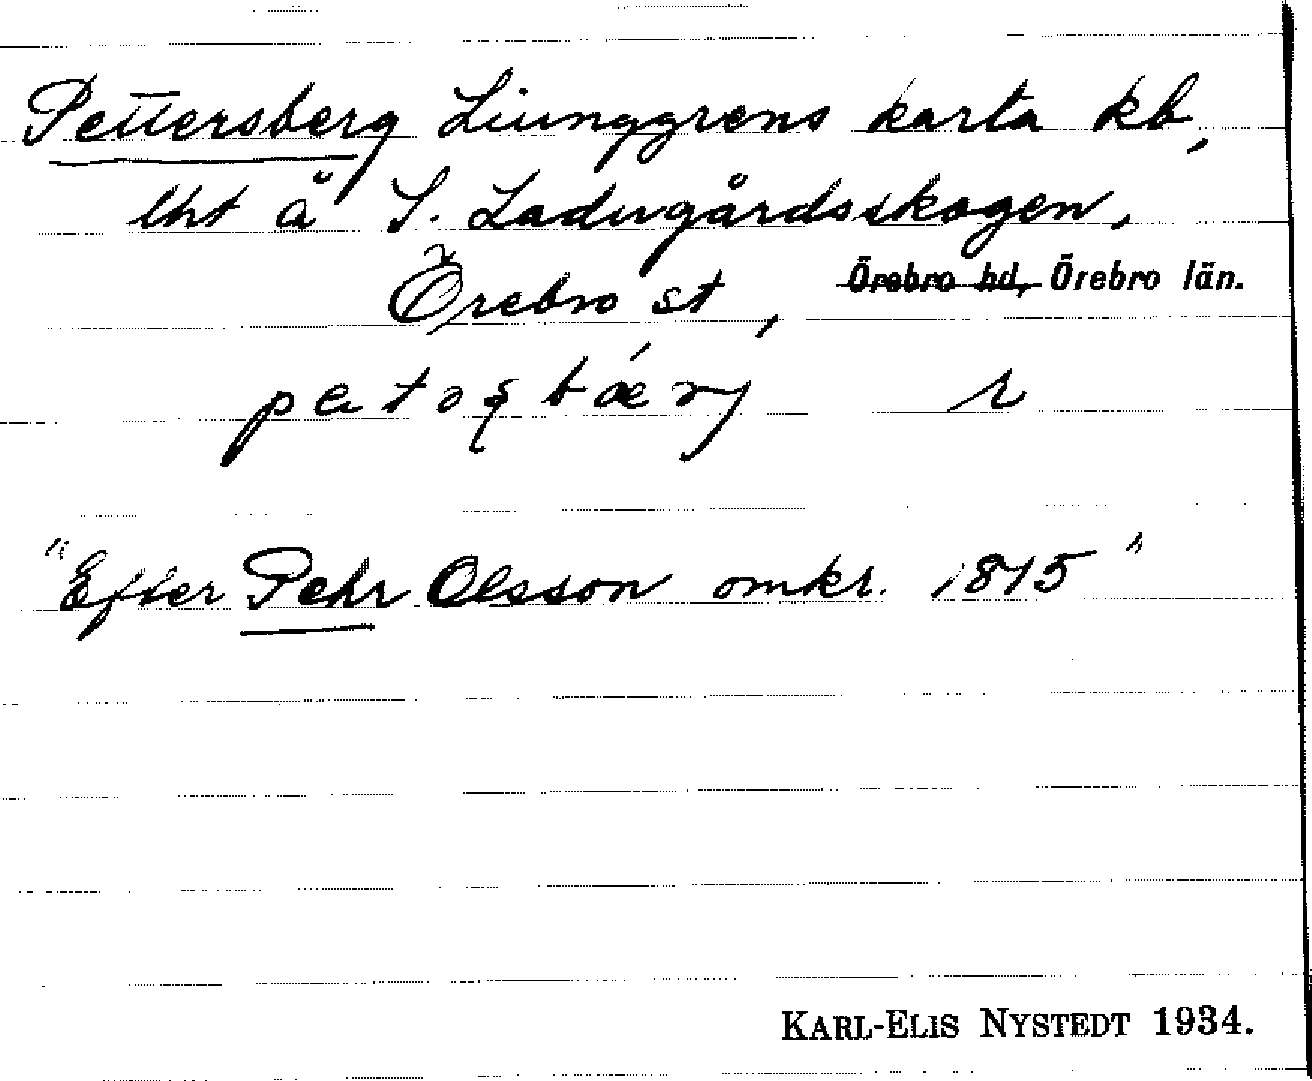 Pettersberg Liunggrens karta kb,
lht å S. Ladugårdsskogen,
Örebro st, Örebro hd, Örebro län.
"Efter Pehr Olsson omkr. 1815"
KARL-ELIS NYSTEDT 1934.